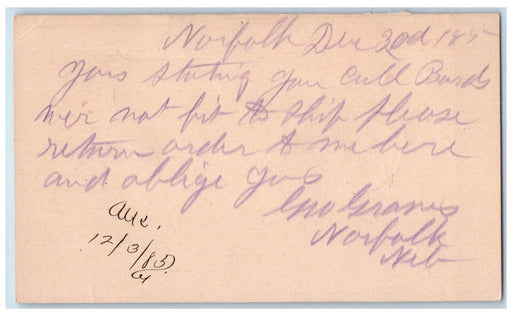 Norfolk Dec 2nd 185
Yours stating your Cull Boards
wer not fit to ship please
return order to me here
and oblige yous
Geo Graves
Norfolk
Neb
Ans.
12/3/85